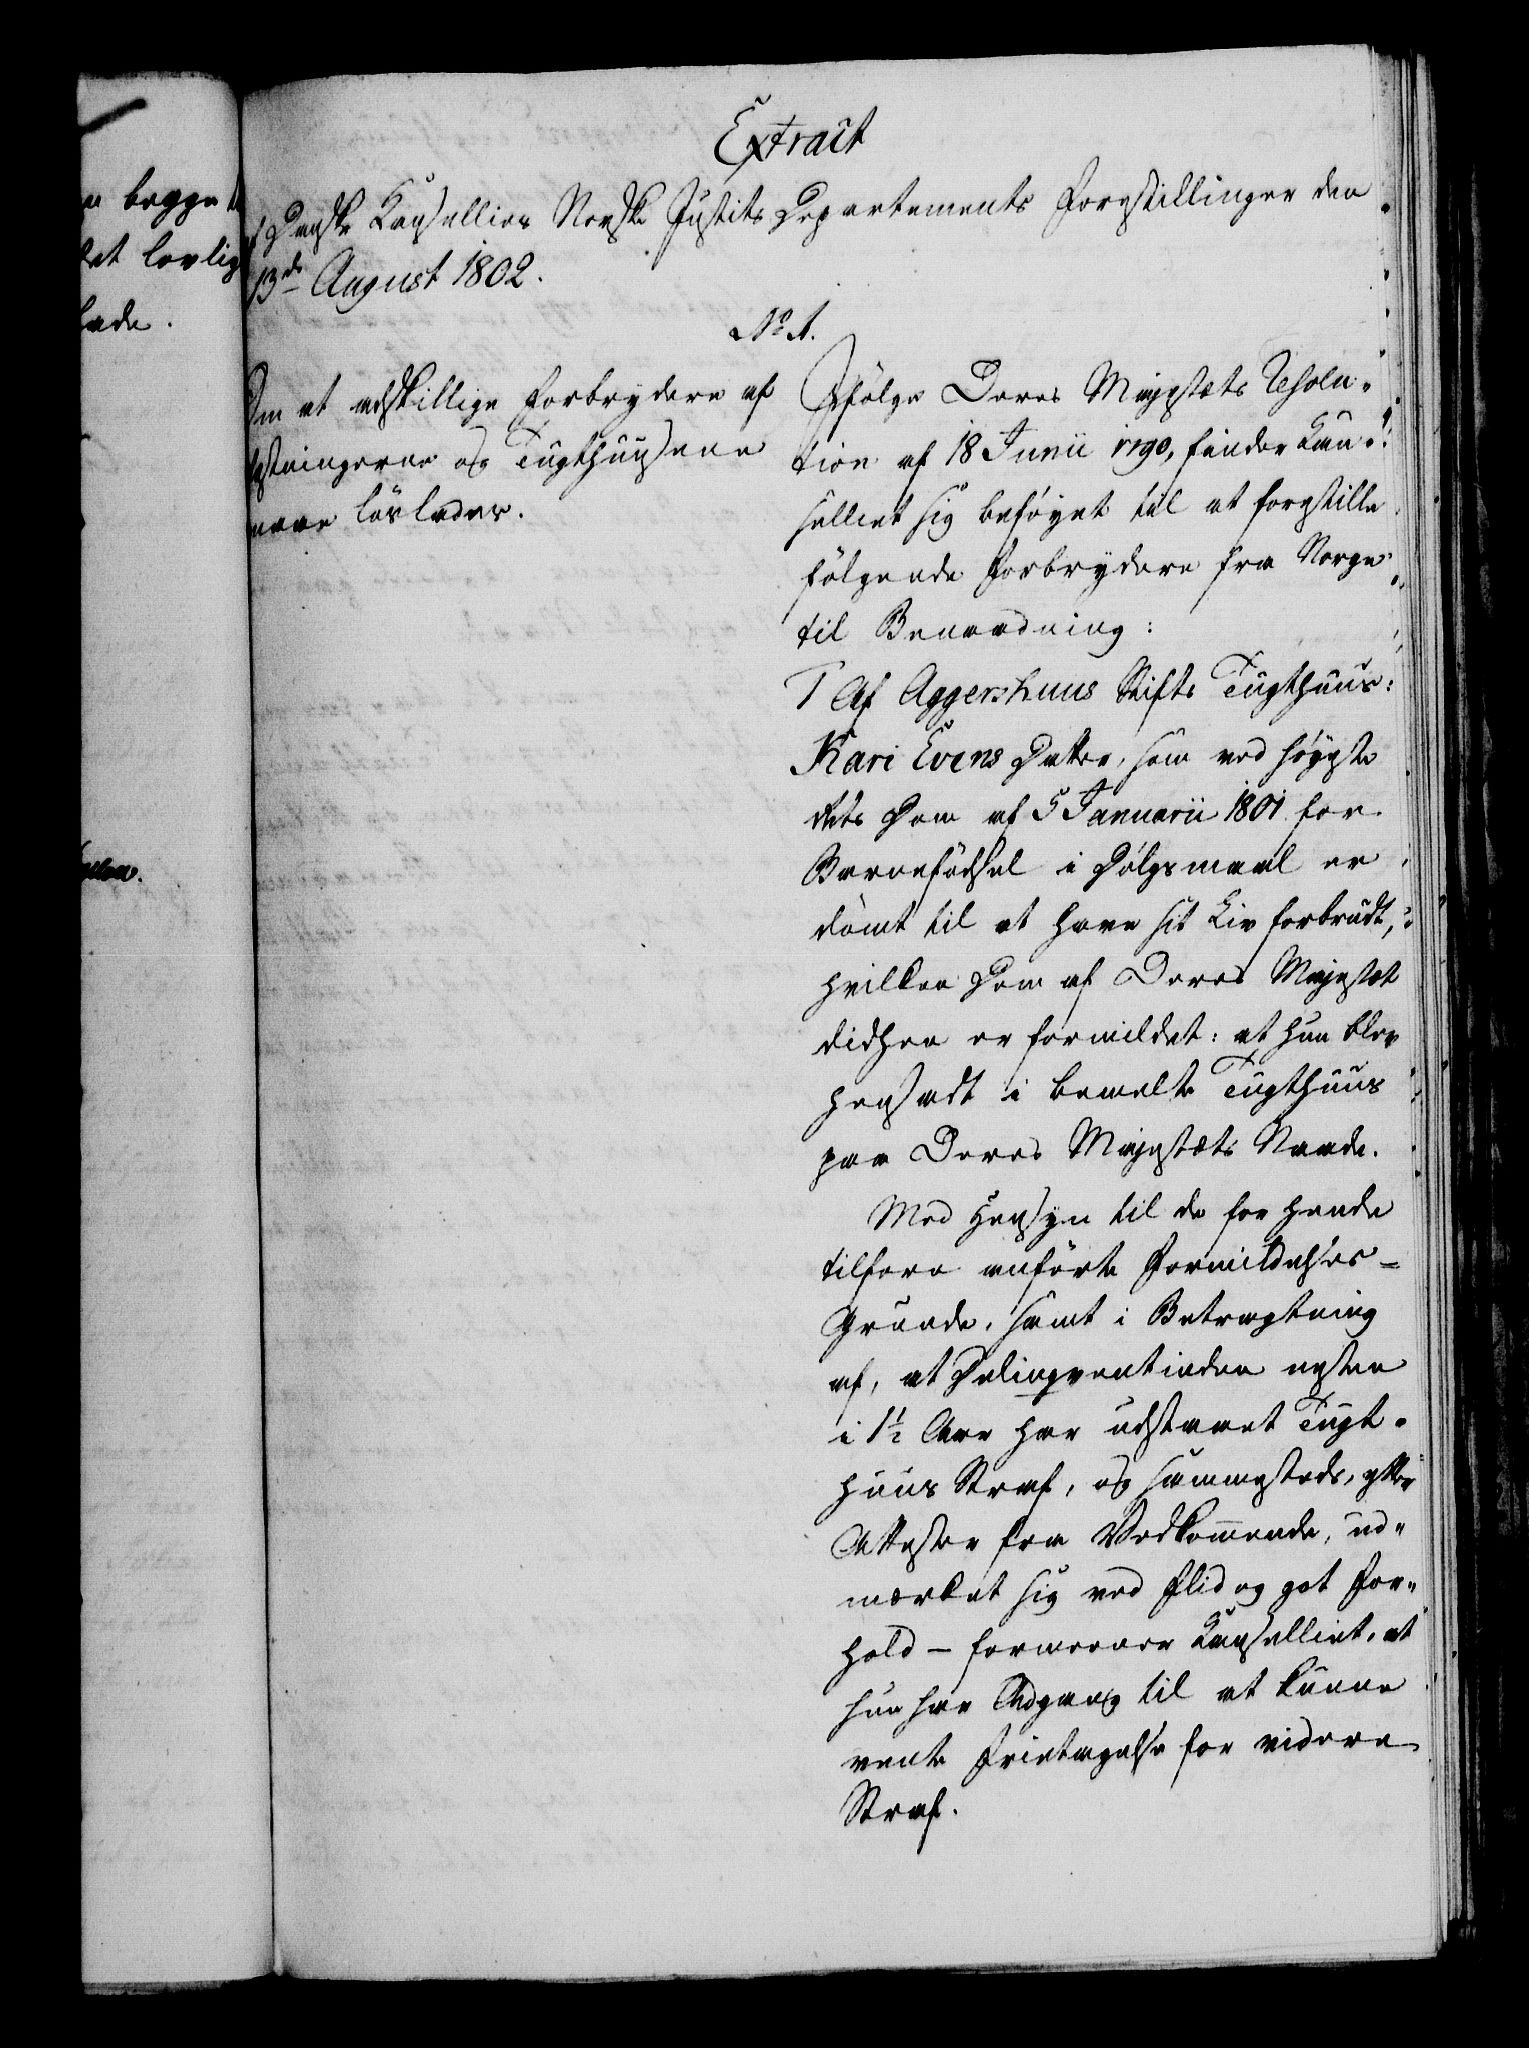 e begge
det lovlig
lade.
Extract
af Danske Cancelliets Norske Justits Departements Forestillinger den
13de August 1802.
No 1.
Om at adskillige Forbrydere af
Fæstningerne og Tugthuusene
maae løslades.
Ifølge Deres Majestæts Resolu-
tion af 18 Junii 1790, finder Can-
celliet sig beføyet til at forestille
følgende Forbrydere fra Norge
til Benaadning:
1 Af Aggershuus Stifts Tugthuus:
Kari Evens Datter, som ved Høyeste
Rets Dom af 5 Januarii 1801 for
Barnefødsel i Dølgsmaal er
dømt til at have sit Liv forbrudt,
hvilken Dom af Deres Majestæt
didhen er formildet: at hun blev
hensadt i bemelte Tugthuus
paa Deres Majestæts Naade.
Med Hensyn til de for hende
tilforn anførte Formildelses-
Grunde, samt i Betragtning
af, at Delinqventinden nesten
i 1½ Aar har udstaaet Tugt-
huus Straf, og sammesteds, efter
Attester fra Vedkommende, ud-
mærket sig ved Flid og got For-
hold – formeener Cancelliet, at
hun har Adgang til at kunne
vente Frietagelse for videre
Straf.